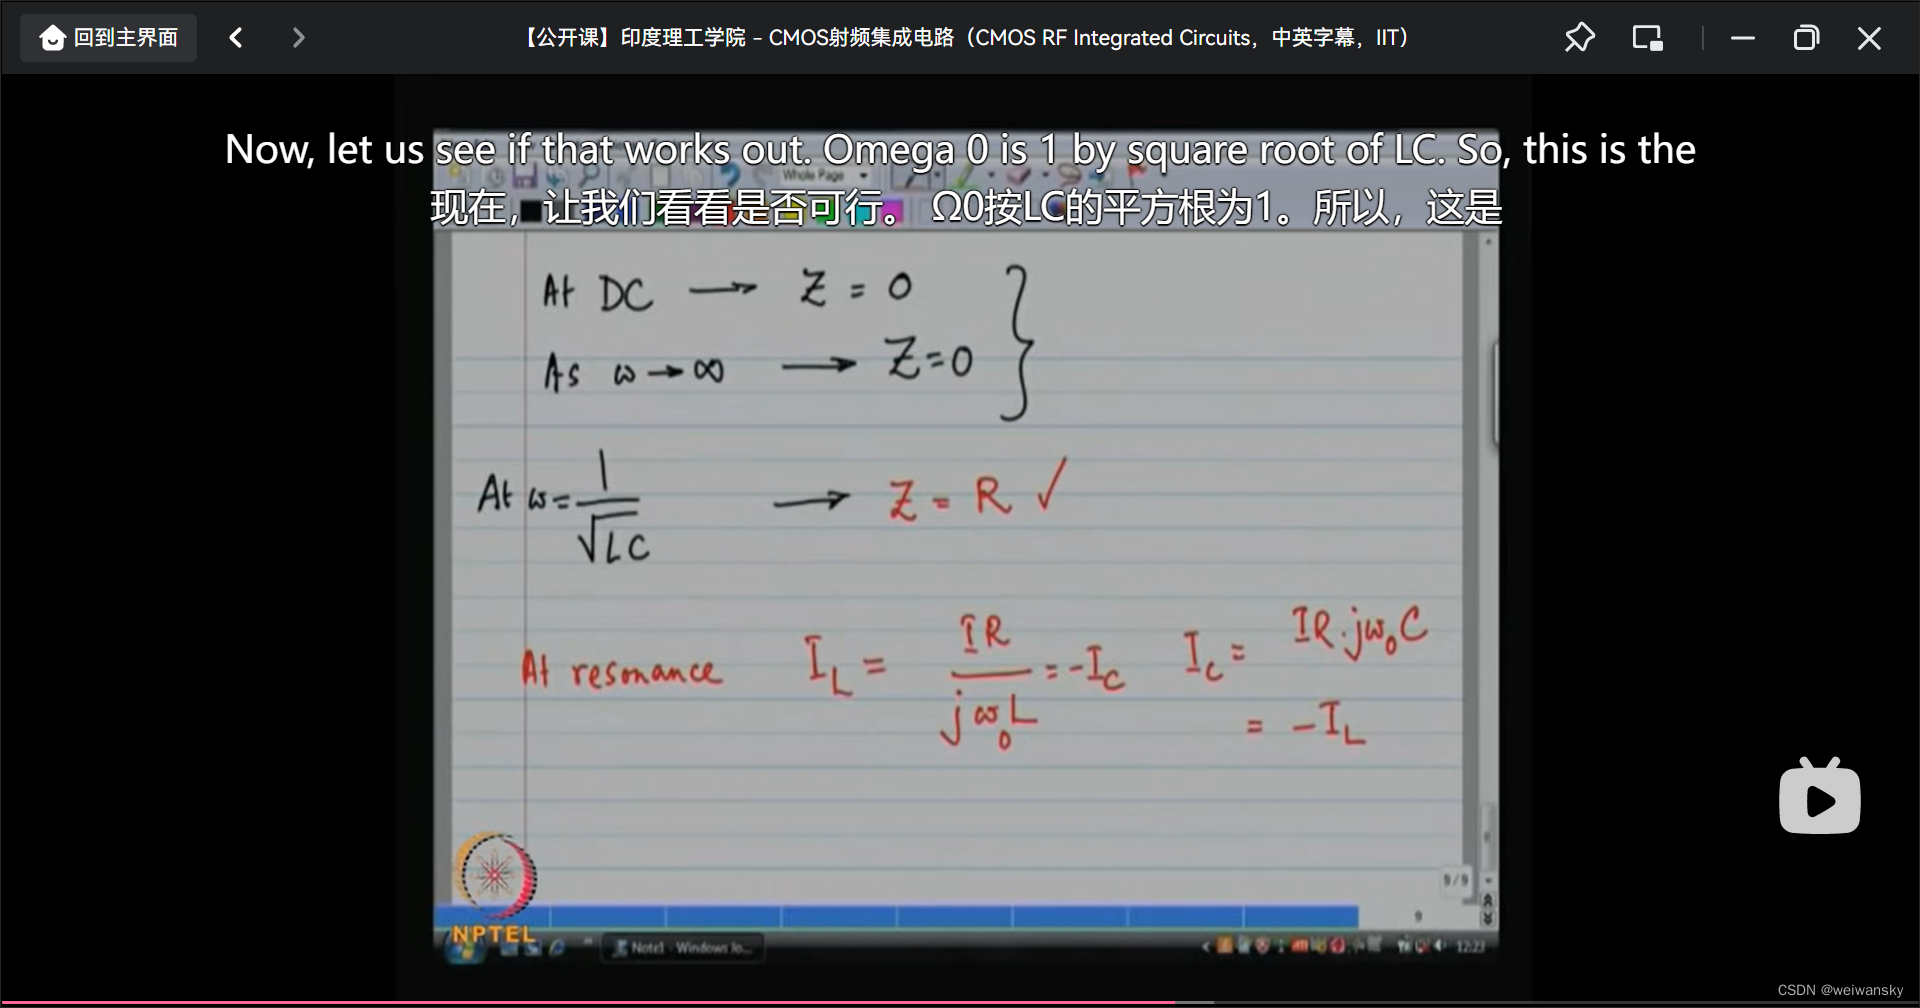 回到主界面
【公开课】印度理工学院 – CMOS射频集成电路（CMOS RF Integrated Circuits，中英字幕，IIT）
Now, let us see if that works out. Omega 0 is 1 by square root of LC. So, this is the
现在，让我们看看是否可行。 Ω0按LC的平方根为1。所以，这是
Whole Page
At DC → Z = 0
As ω → ∞ → Z = 0
At ω = 1/√LC → Z = R ✓
At resonance I_L = IR/jω₀L = -I_C I_C = IR·jω₀C
= -I_L
9/9
9
NPTEL
Note1 - Windows Jo...
12:23
CSDN @weiwansky